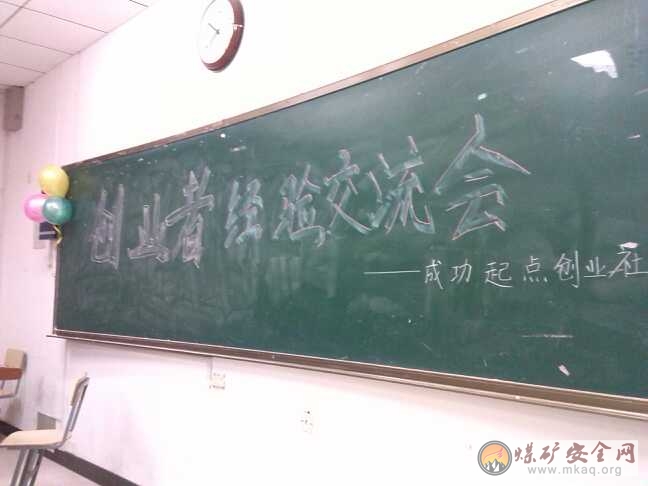 创业者经验交流会
——成功起点创业社
煤矿安全网
www.mkaq.org